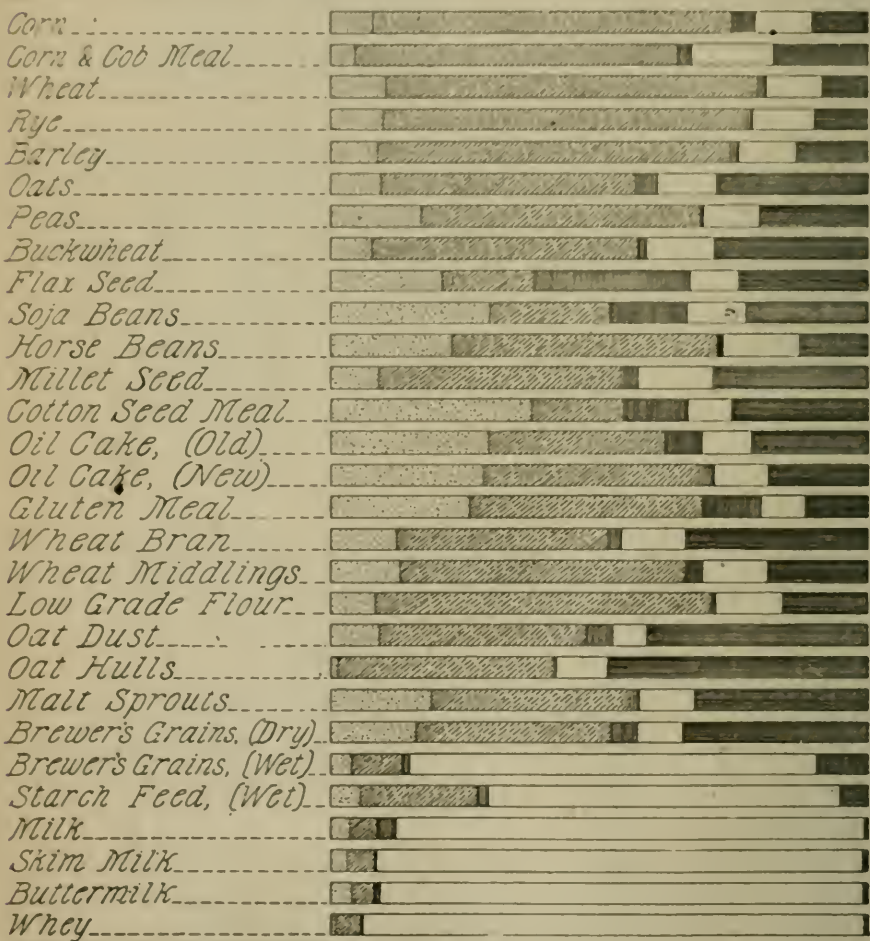 Corn
Corn & Cob Meal
Wheat
Rye
Barley
Oats
Peas
Buckwheat
Flax Seed
Soja Beans
Horse Beans
Millet Seed
Cotton Seed Meal
Oil Cake, (Old)
Oil Cake, (New)
Gluten Meal
Wheat Bran
Wheat Middlings
Low Grade Flour
Oat Dust
Oat Hulls
Malt Sprouts
Brewer's Grains, (Dry)
Brewer's Grains, (Wet)
Starch Feed, (Wet)
Milk
Skim Milk
Buttermilk
Whey